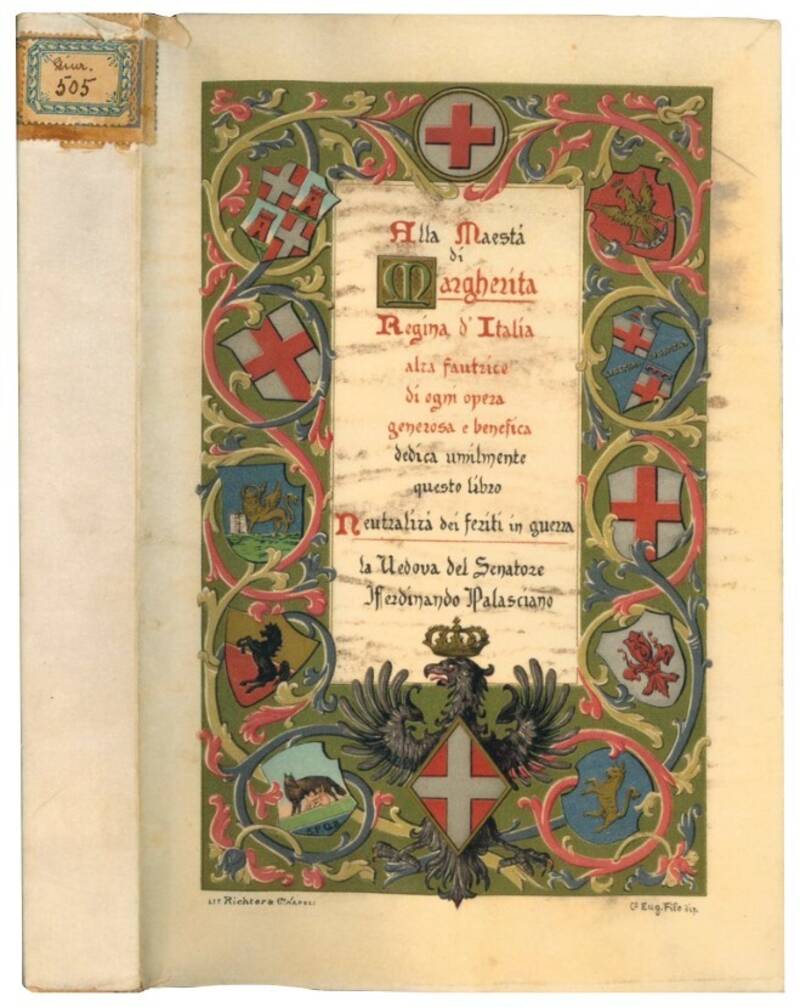 Giur.
505
Alla Maestá
di
Margherita
Regina d'Italia
alta fautrice
di ogni opera
generosa e benefica
dedica umilmente
questo libro
Neutralitá dei feriti in guerra
la Vedova del Senatore
Ferdinando Palasciano
LIBERTAS
S.P.Q.R
LIT Richter & Cº NAPOLI
Cº Eug. Filo dip.